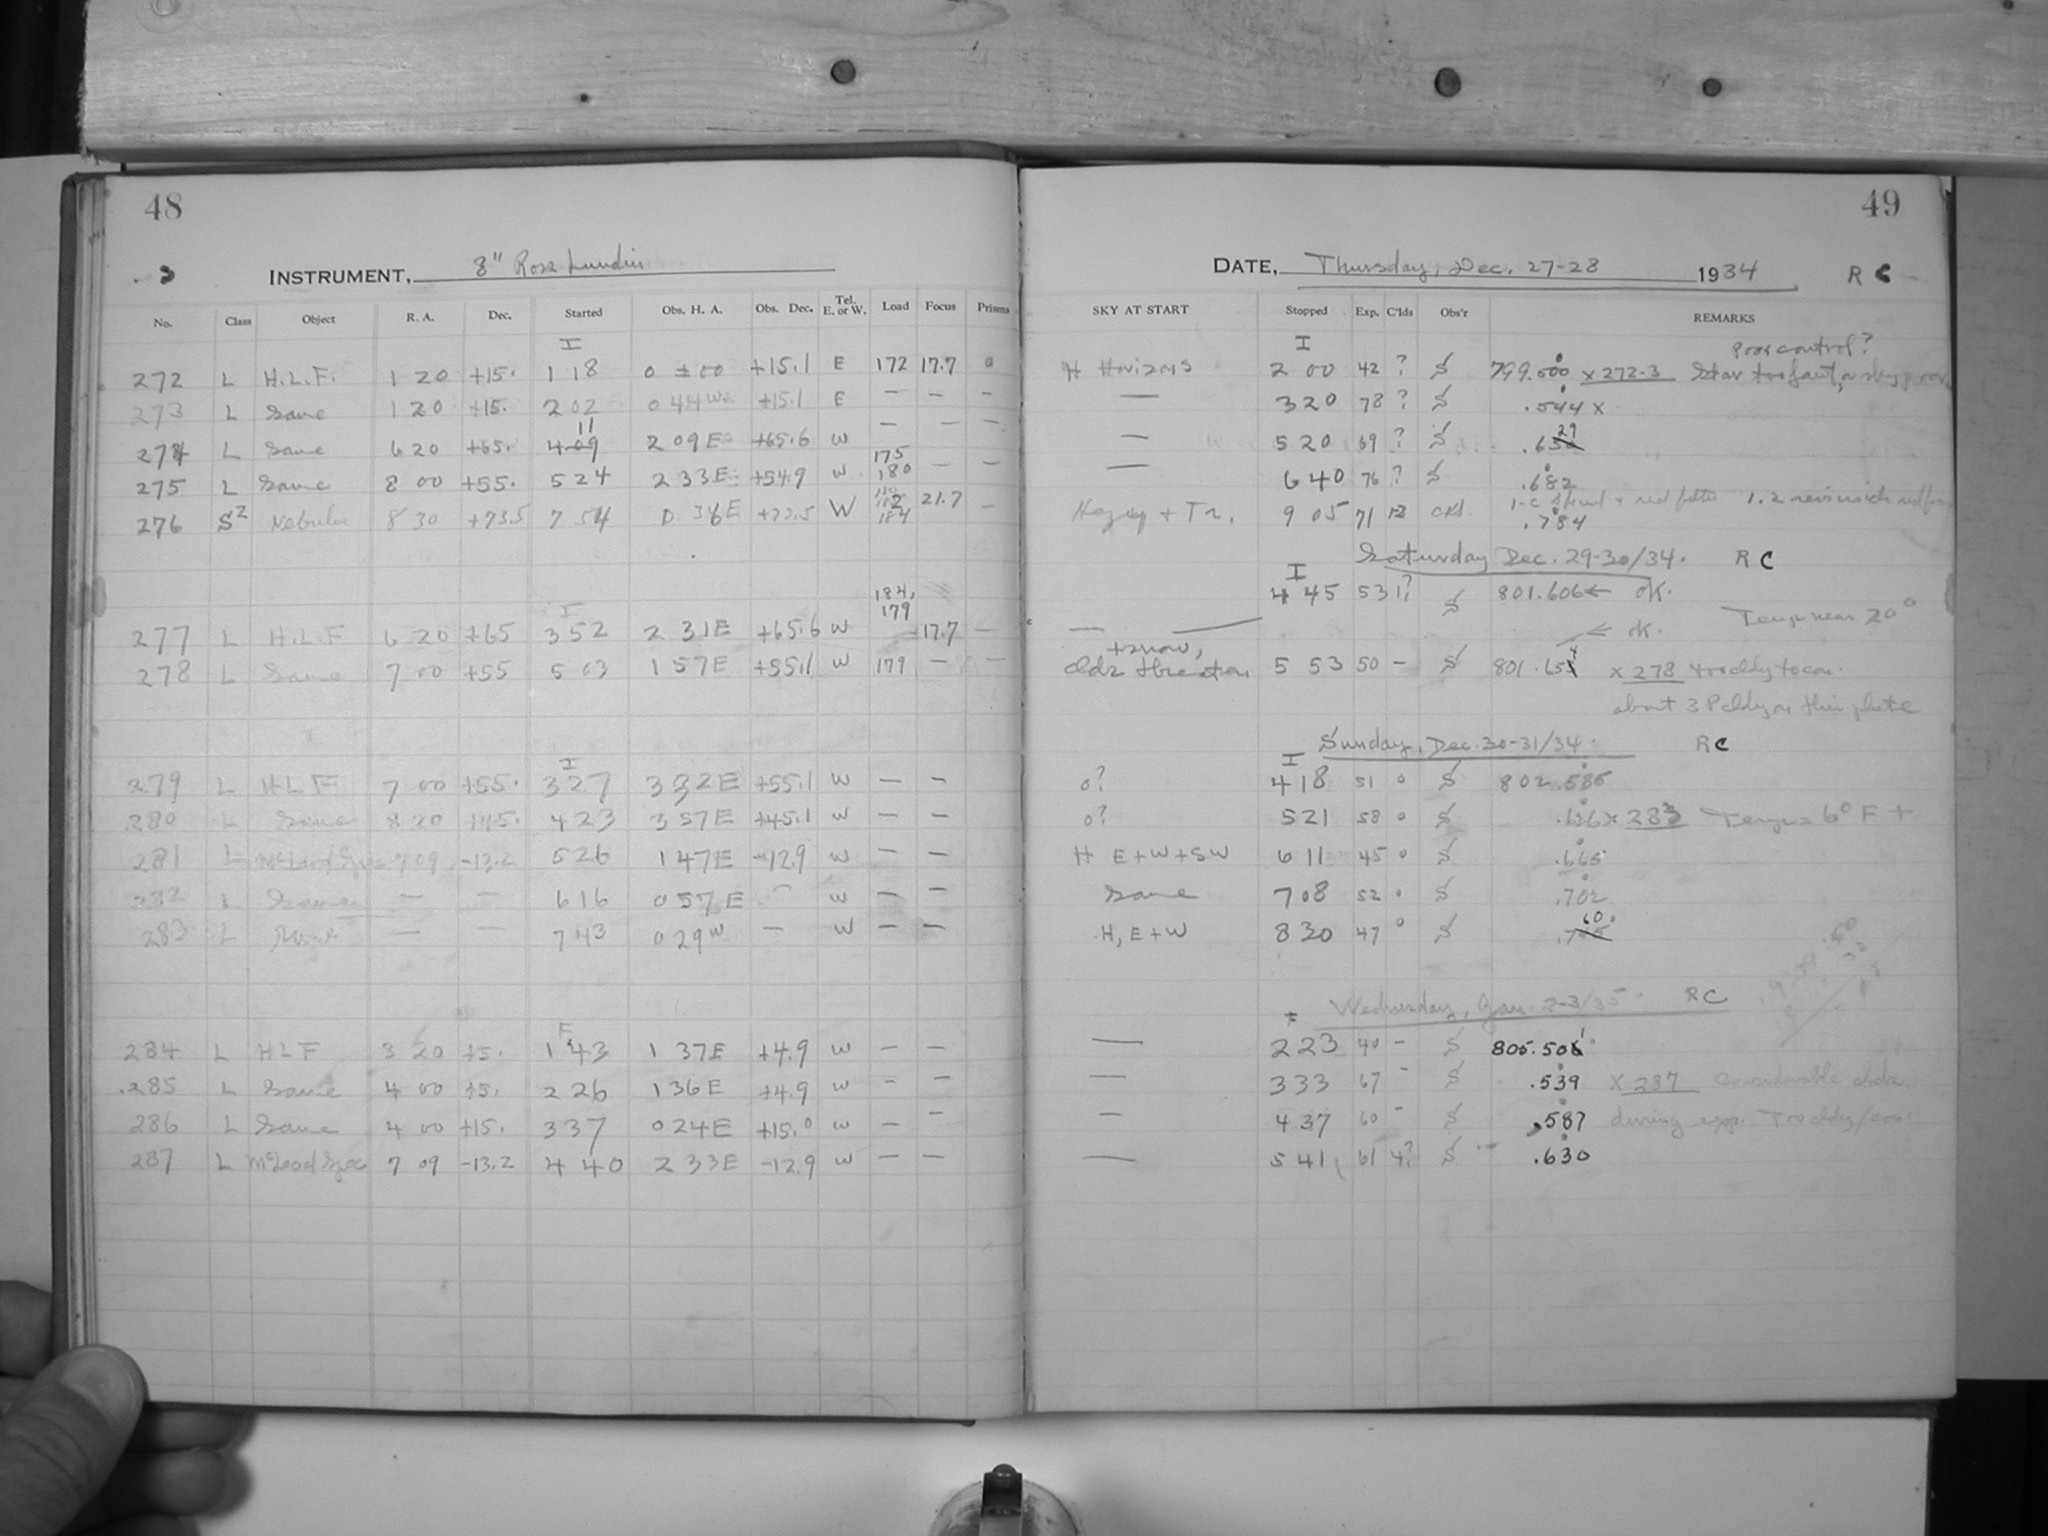 48
49
INSTRUMENT, 8" Ross Lundin
DATE, Thursday, Dec. 27-28 1934 R C
No. Class Object R. A. Dec. Started Obs. H. A. Obs. Dec. Tel. E. or W. Load Focus Prisms
SKY AT START Stopped Exp. C'lds Obs'r REMARKS
I
I
Poor control?
272 L H.L.F. 1 20 +15. 1 18 0 ±00 +15.1 E 172 17.7 0
H Horizons 2 00 42 ? S 799.000 x 272-3 Star too faint, or sky poor
273 L Same 1 20 +15. 2 02 0 44 W +15.1 E — — —
— 3 20 78 ? S .544 x
274 L Same 6 20 +65. 4 09 11 2 09 E +65.6 W — — —
— 5 20 69 ? S 29
275 L Same 8 00 +55. 5 24 2 33 E +54.9 W 175 180 — —
— 6 40 76 ? S .682
276 S2 Nebula 8 30 +73.5 7 54 0 36 E W 184 21.7 —
Hazy + Tr. 9 05 71 .784
Saturday Dec. 29-30/34. R C
I
I
184, 179
277 L H.L.F 6 20 +65 3 52 2 31 E +65.6 W 17.7 —
— 4 45 53 1? S 801.606 ← OK.
Temp near 20°
← OK.
278 L Same 7 00 +55 5 03 1 57 E +55.1 W 179 — —
5 53 50 — S 801.65 4 x 278
about 3 P cldy on this plate
Sunday, Dec. 30-31/34. R C
I
I
279 L HLF 7 00 +55. 3 27 3 32 E +55.1 W — —
0? 4 18 51 0 S 802.585
280 L Same 8 20 +45. 4 23 3 57 E +45.1 W — —
0? 5 21 58 0 S .626 x 283 Temp = 6° F +
281 L McLeod Spec 7 09 -13.2 5 26 1 47 E -12.9 W — —
H E+W+SW 6 11 45 0 S .665
282 L Same — — 6 16 0 57 E W — —
Same 7 08 52 0 S .702
283 L Same — — 7 43 0 29 W — W — —
H, E+W 8 30 47 0 S 60
Wednesday, Jan. 2-3/35. R C
F
F
284 L HLF 3 20 +5. 1 43 1 37 E +4.9 W — —
— 2 23 40 — S 805.50 1
285 L Same 4 00 +5. 2 26 1 36 E +4.9 W — —
— 3 33 67 - S .539 x 287 Considerable cldr
286 L Same 4 00 +15. 3 37 0 24 E +15.0 W — —
— 4 37 60 - S .587 during exp. Too cldy/con.
287 L McLeod Spec 7 09 -13.2 4 40 2 33 E -12.9 W — —
— 5 41 61 4? S — .630